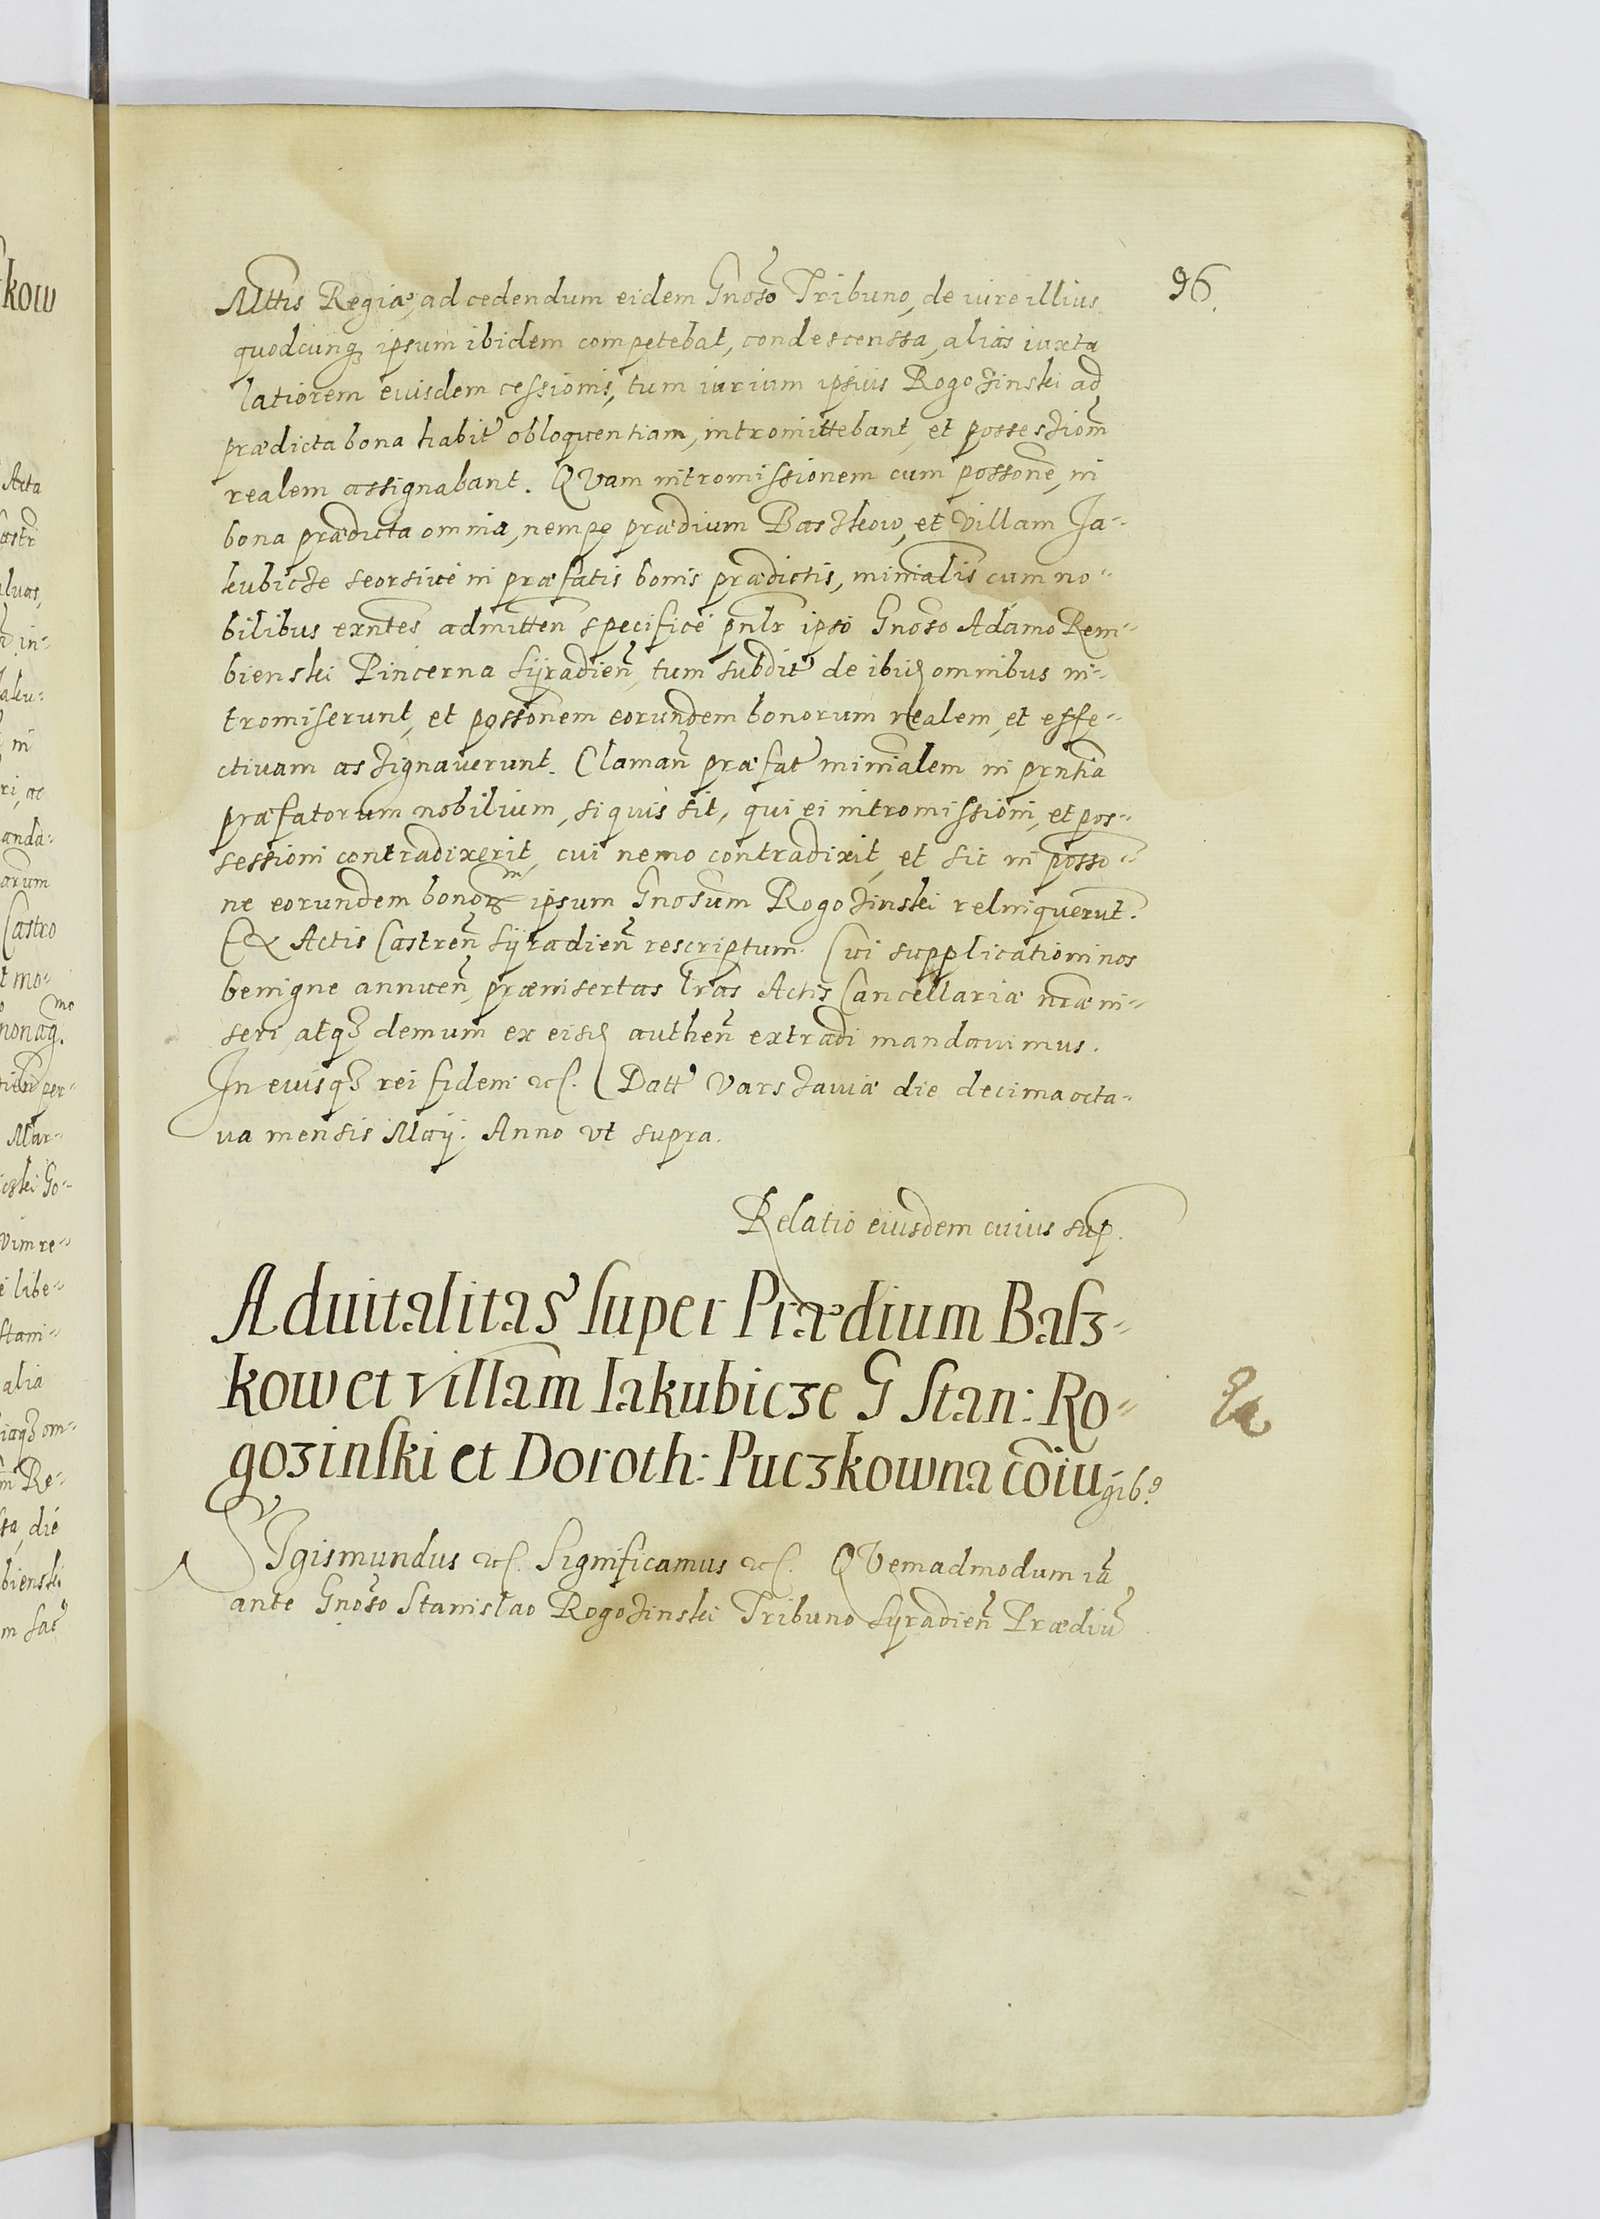 96.
Mttis Regiæ, ad cedendum eidem Gnoso Tribuno, de iure illius
quodcunq ipsum ibidem competebat, condescenssa, alias iuxta
latiorem eiusdem cessionis, tum iurium ipsius Rogozinski ad
prædicta bona habit obloquentiam, intromittebant, et possessiom
realem assignabant. QVam intromissionem cum possone, in
bona prædicta omnia, nempe prædium Baszkow, et villam Ja-
kubicze seorsive in præfatis bonis prædictis, minialis cum no-
bilibus exntes admitten specifice pnlr ipso Gnoso Adamo Rem-
bienski Pincerna Syradien, tum subdit de ibid omnibus in-
tromiserunt, et possonem eorundem bonorum realem, et effe-
ctivam assignaverunt. Claman præfat minialem in prntia
præfatorum nobilium, si quis sit, qui ei intromissioni, et pos-
sessioni contradixerit, cui nemo contradixit, et sic in posso-
ne eorundem bonor ipsum Gnosum Rogozinski relinquerut.
Ex Actis Castren Syradien rescriptum. Cui supplicationi nos
benigne annuen, præinsertas lras Actis Cancellariæ nræ in-
seri, atq demum ex eisd authen extradi mandavimus.
In cuisq rei fidem etc. Datt Varszaviæ die decima octa-
va mensis Maij. Anno vt supra.
Relatio eiusdem cuius sup.
Advitalitas super Prædium Basz-
kow et villam Iakubicze G Stan: Ro-
gozinski et Doroth: Puczkowna coiugib9
SIgismundus etc. Significamus etc. QVemadmodum iā
ante Gnoso Stanislao Rogozinski Tribuno Syradien Prædiū